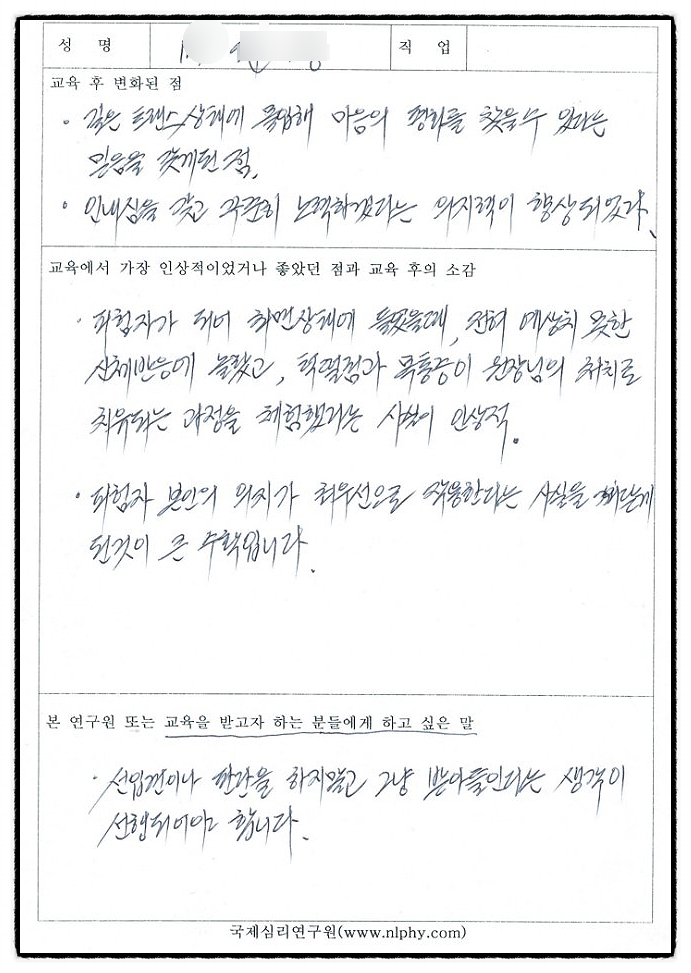 성 명 직 업
교육 후 변화된 점
· 깊은 트랜스상태에 몰입해 마음의 평화를 찾을수 있다는
믿음을 갖게된 점.
· 인내심을 갖고 꾸준히 노력하겠다는 의지력이 향상되었다.
교육에서 가장 인상적이었거나 좋았던 점과 교육 후의 소감
· 피험자가 되어 최면상태에 들었을때, 전혀 예상치 못한
신체반응에 놀랐고, 목통증이 원장님의 처치로
치유되는 과정을 체험했다는 사실이 인상적.
· 피험자 본인의 의지가 최우선으로 작용한다는 사실을 깨닫게
된것이 큰 수확입니다.
본 연구원 또는 교육을 받고자 하는 분들에게 하고 싶은 말
· 선입견이나 판단을 하지말고 그냥 받아들인다는 생각이
선행되어야 합니다.
국제심리연구원(www.nlphy.com)